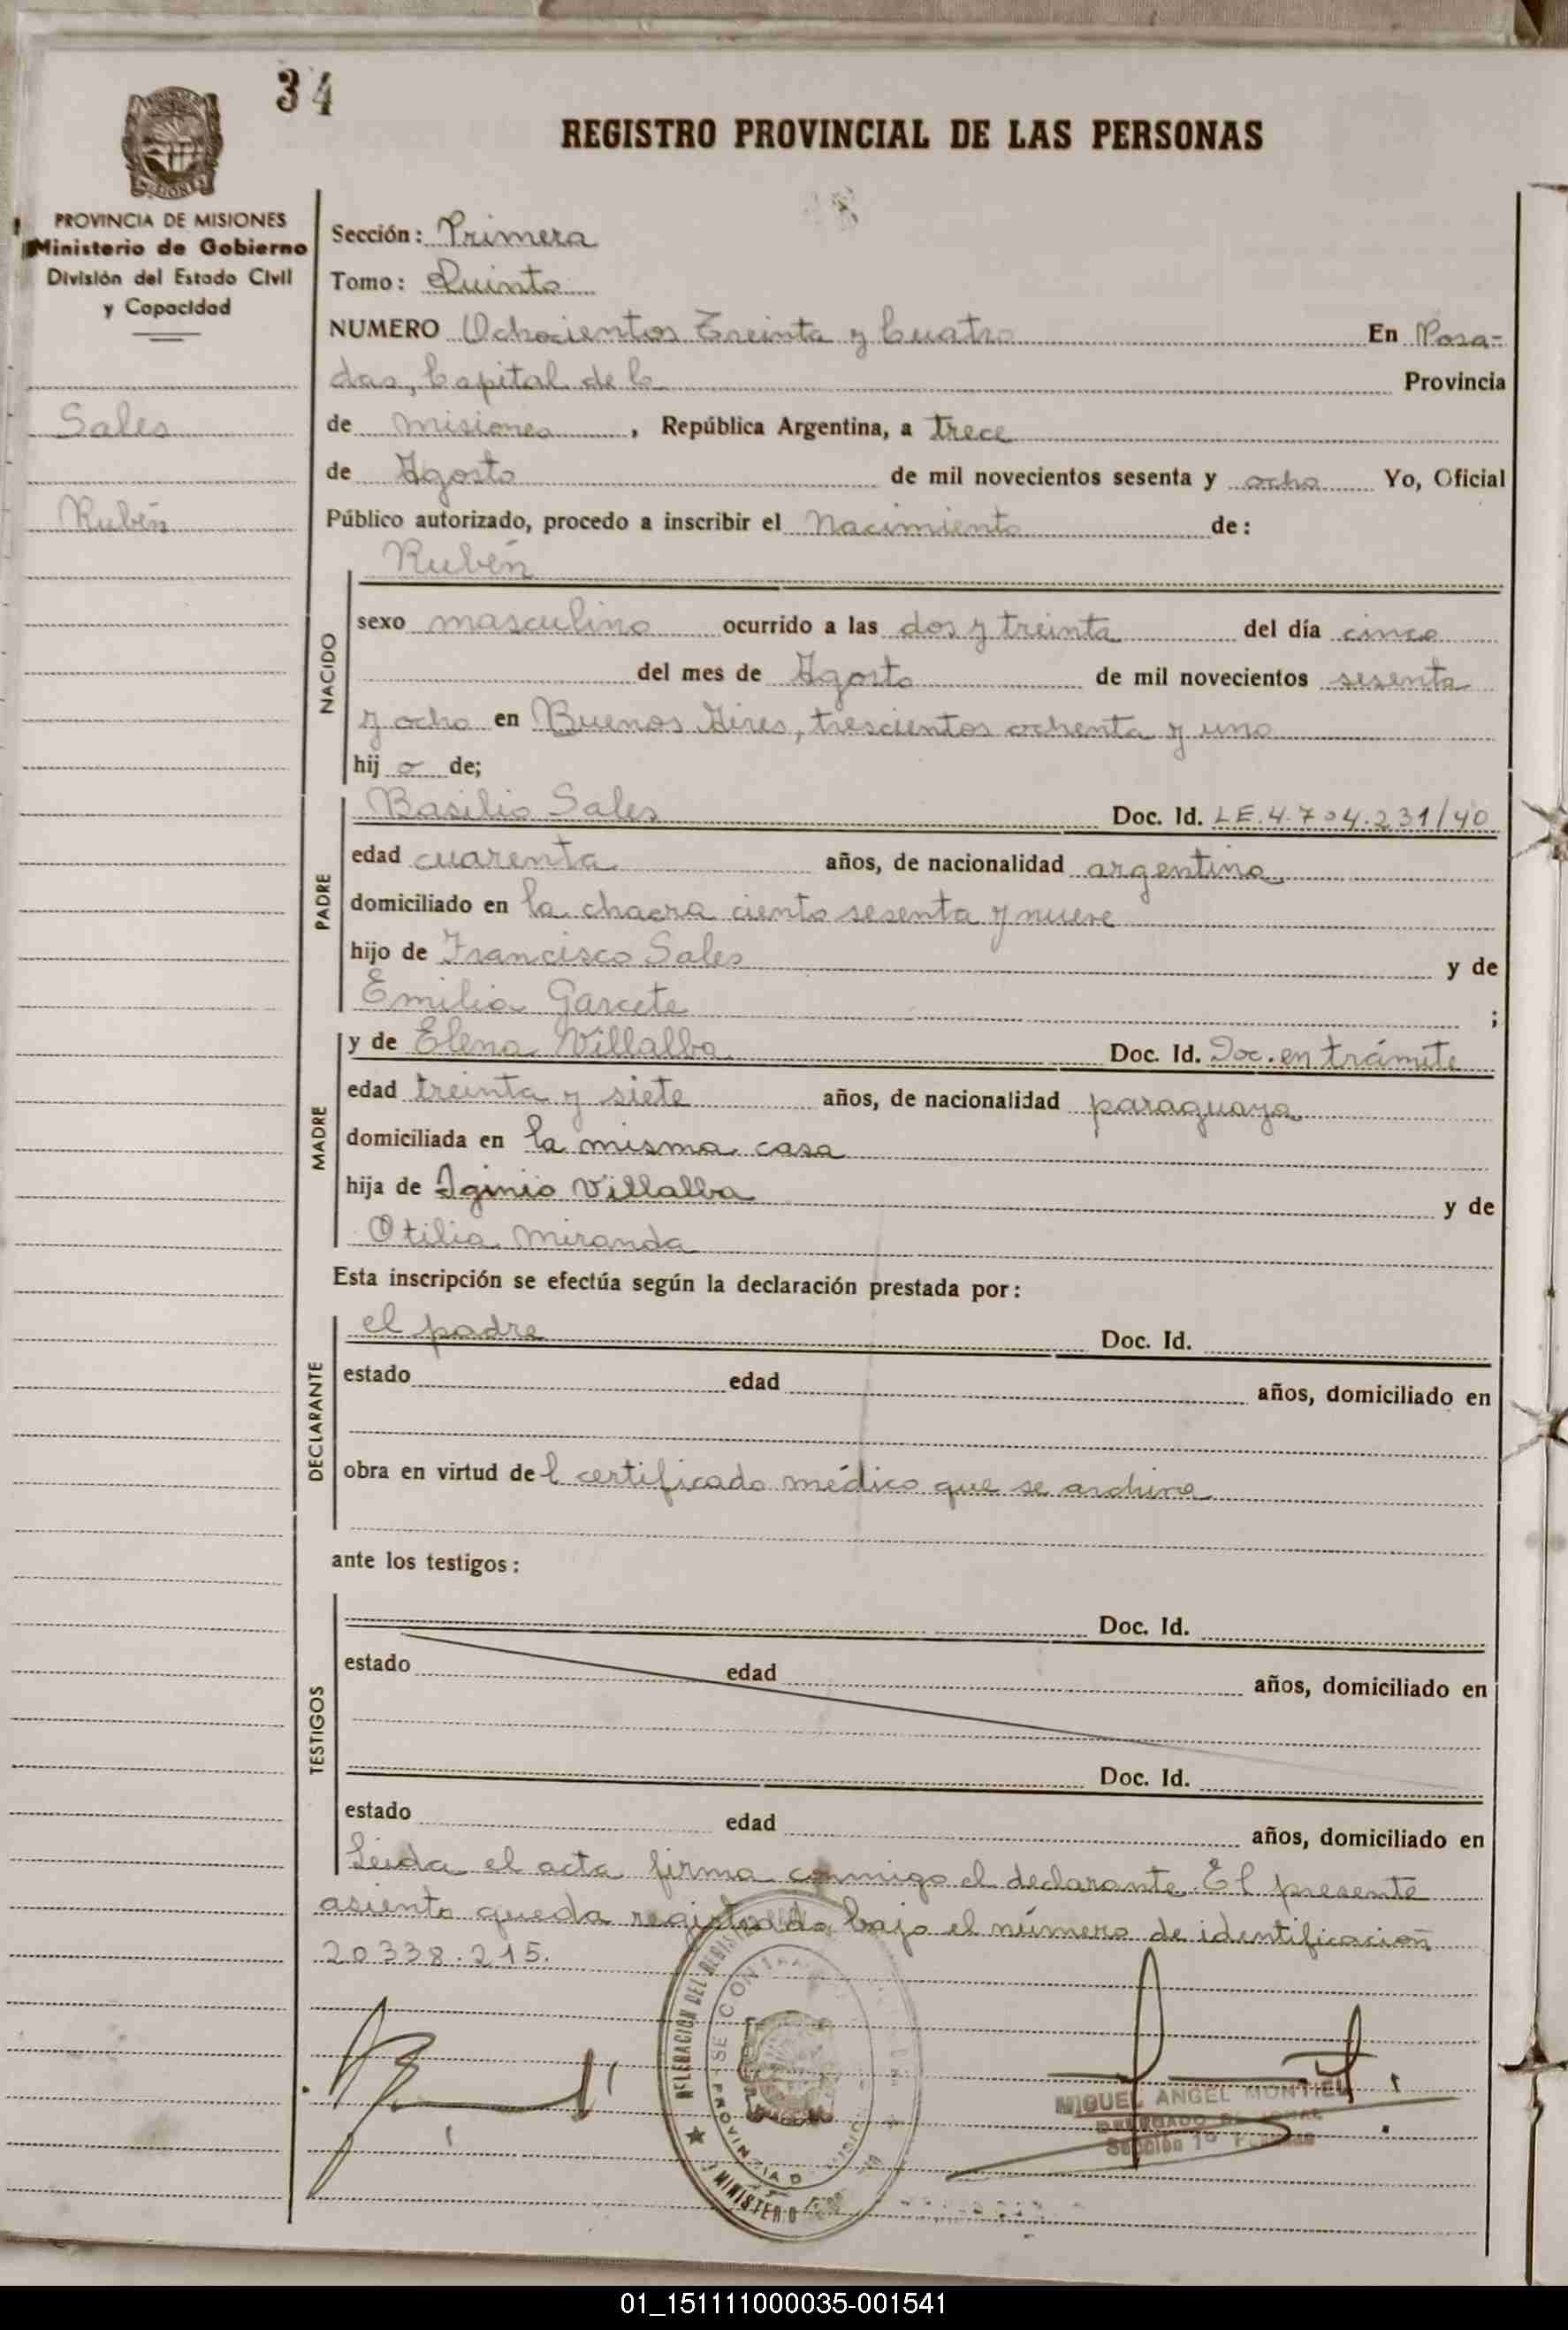 34
REGISTRO PROVINCIAL DE LAS PERSONAS
MISIONES
PROVINCIA DE MISIONES
Ministerio de Gobierno
División del Estado Civil
y Capacidad
Sales
Rubén
Sección: Primera
Tomo: Quinto
NUMERO Ochocientos Treinta y Cuatro En Posa-
das, Capital de la Provincia
de Misiones, República Argentina, a trece
de Agosto de mil novecientos sesenta y ocho Yo, Oficial
Público autorizado, procedo a inscribir el Nacimiento de:
Rubén
NACIDO
sexo masculino ocurrido a las dos y treinta del día cinco
del mes de Agosto de mil novecientos sesenta
y ocho en Buenos Aires, trescientos ochenta y uno
hij o de;
PADRE
Basilio Sales Doc. Id. LE.4.704.231/40
edad cuarenta años, de nacionalidad argentina
domiciliado en la chacra ciento sesenta y nueve
hijo de Francisco Sales y de
Emilia Garcete ;
MADRE
y de Elena Villalba Doc. Id. Doc. en trámite
edad treinta y siete años, de nacionalidad paraguaya
domiciliada en la misma casa
hija de Iginio Villalba y de
Otilia Miranda
Esta inscripción se efectúa según la declaración prestada por:
DECLARANTE
el padre Doc. Id.
estado edad años, domiciliado en
obra en virtud de l certificado médico que se archiva
ante los testigos:
TESTIGOS
Doc. Id.
estado edad años, domiciliado en
Doc. Id.
estado edad años, domiciliado en
Leida el acta firma conmigo el declarante. El presente
asiento queda registrado bajo el número de identificación
20.338.215.
DELEGACION DEL REGIST
SE CON
PROVINCIA D
MINISTERIO
MIGUEL ANGEL MONTIEL
DELEGADO
Sección 1º
01_151111000035-001541